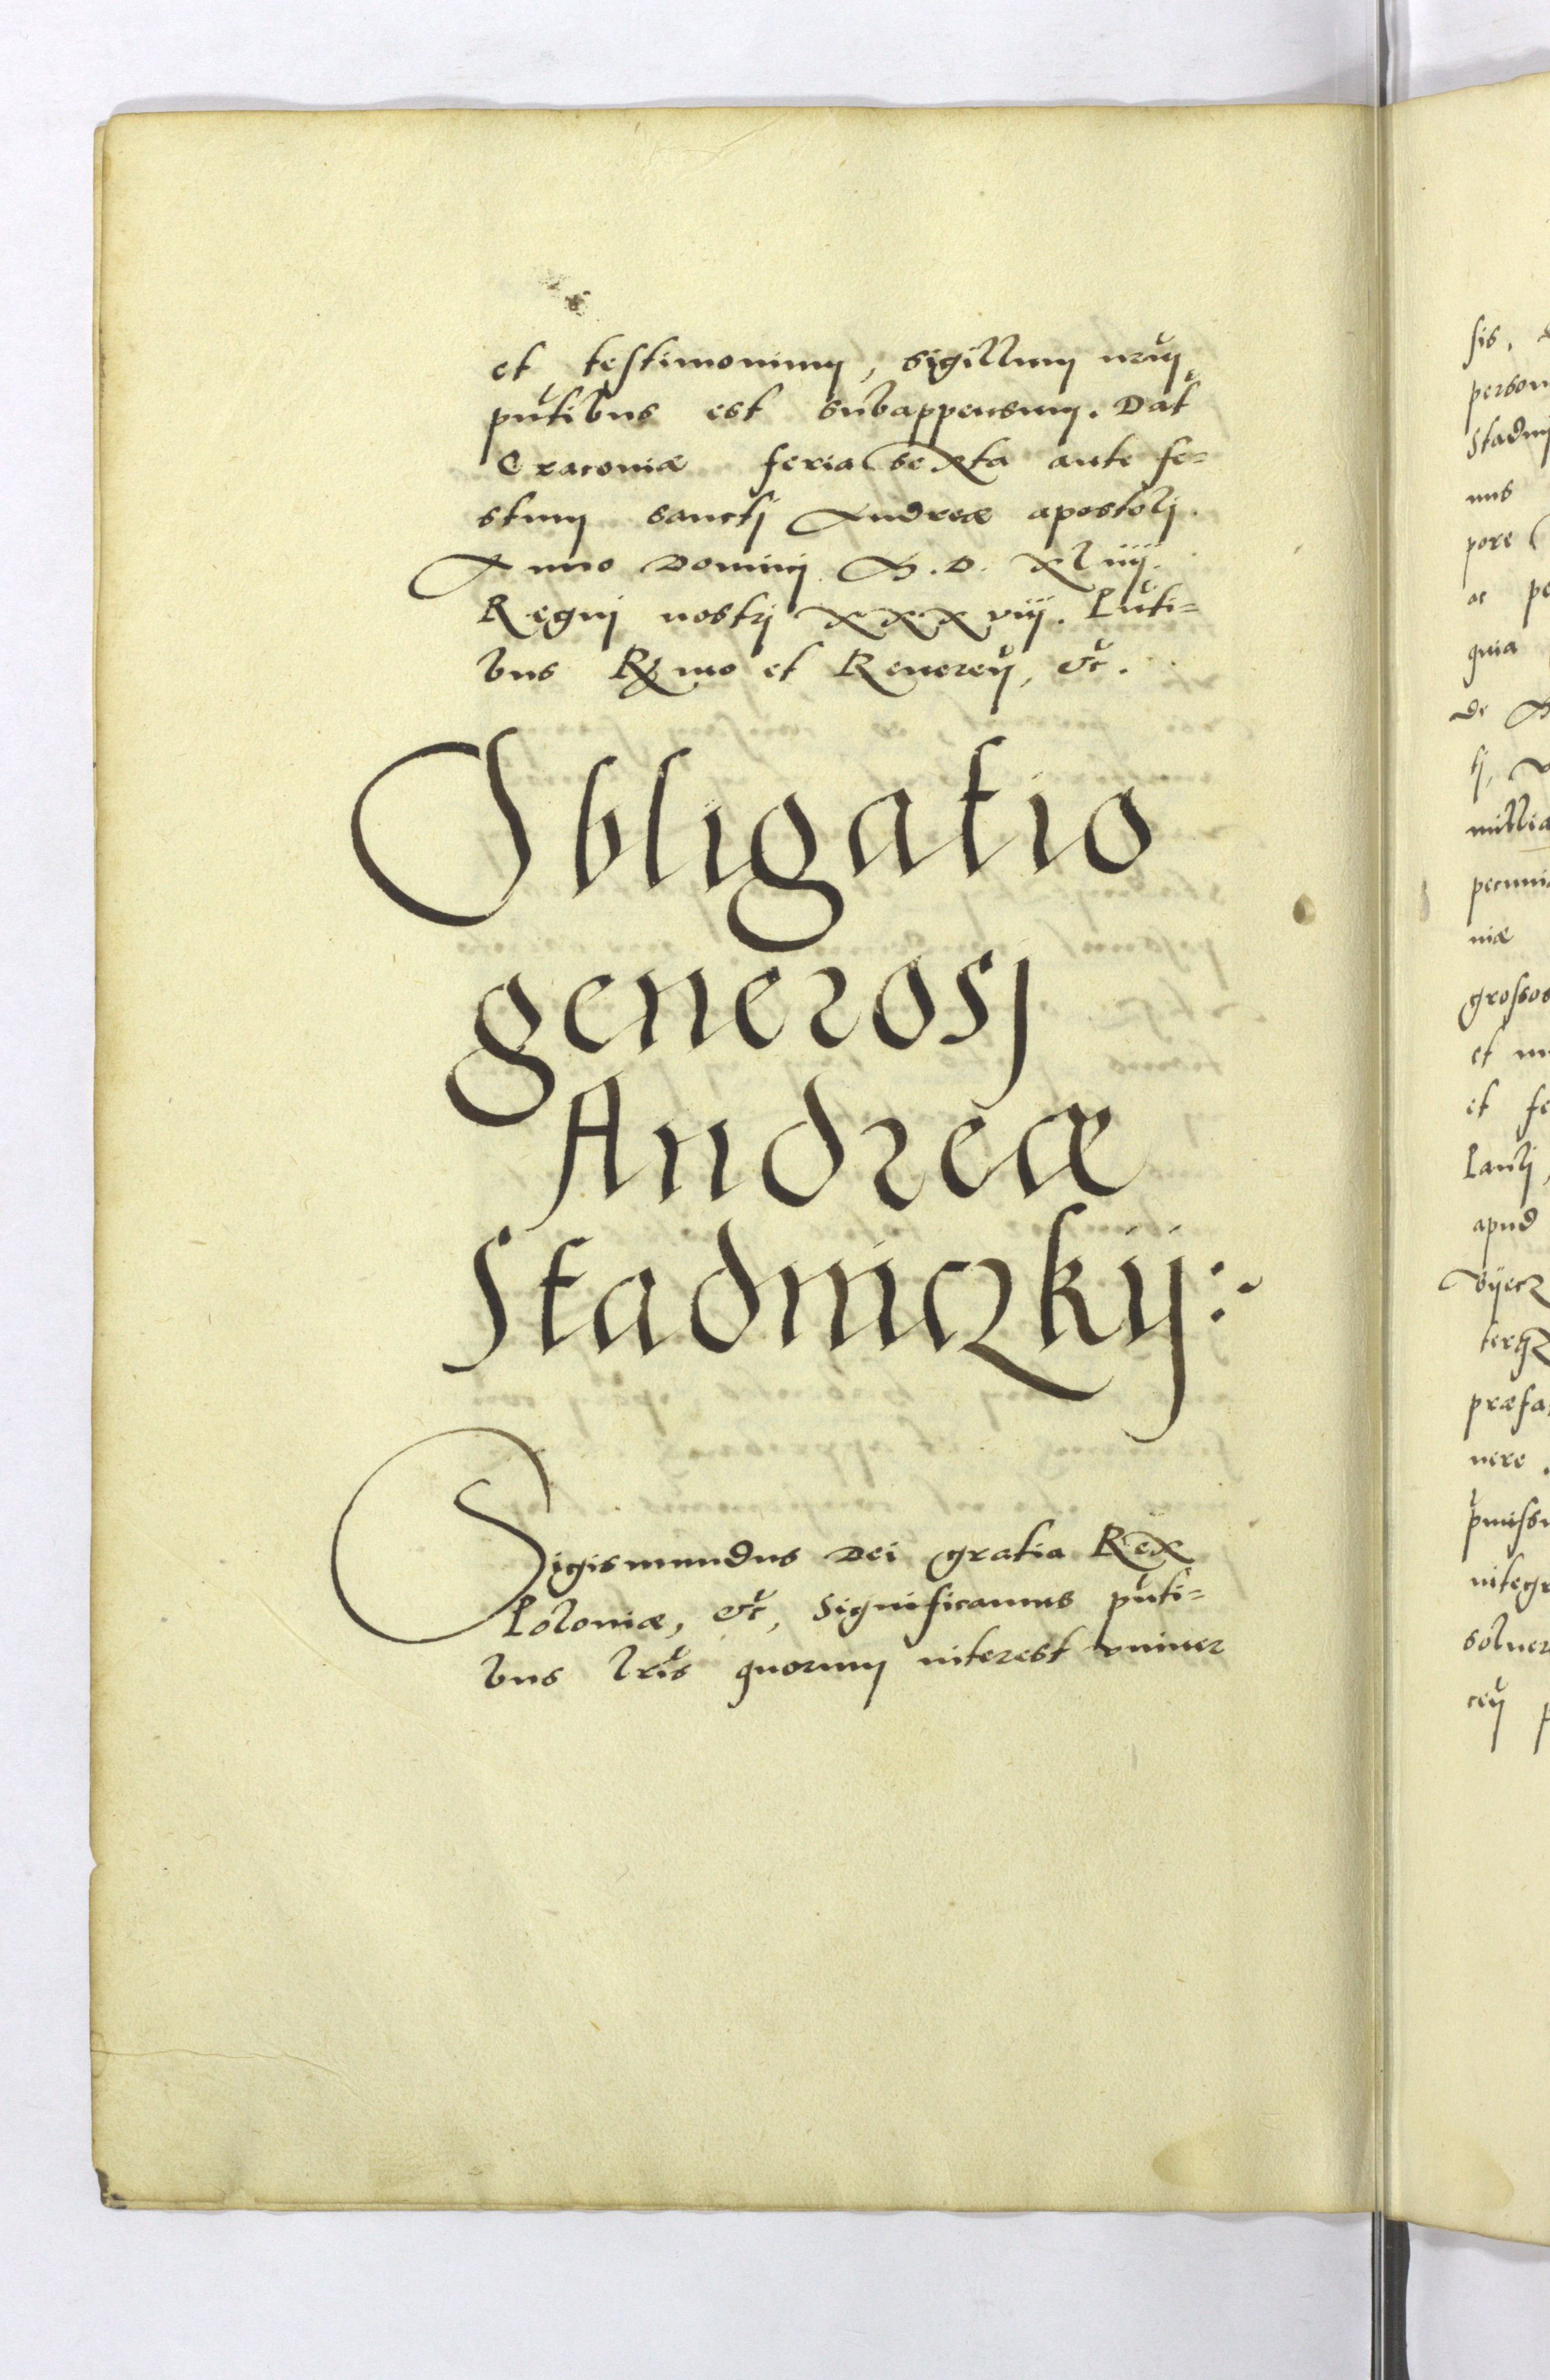 et testimonium, sigillum nrum
pntibus est subappensum. Dat
Cracoviæ feria sexta ante fe=
stum sanctj Andreæ apostolj.
Anno Dominj M.D. xliiij.
Regnj nostrj xxxviij. Pnti=
bus Rmo et Reveren, etc.
Obligatio
generosj
Andreæ
Stadniczkij:~
Sigismundus Dei gratia Rex
Poloniæ, etc, Significamus pnti=
bus lris quorum interest univer
sis,
person
Stadnij
nus
pore
ac pe
quia
de
tj,
millia
pecunia
niæ
grossos
et
et fe
Paulj,
apud
Byecz
præfa
nere.
pmiss
integr
solver